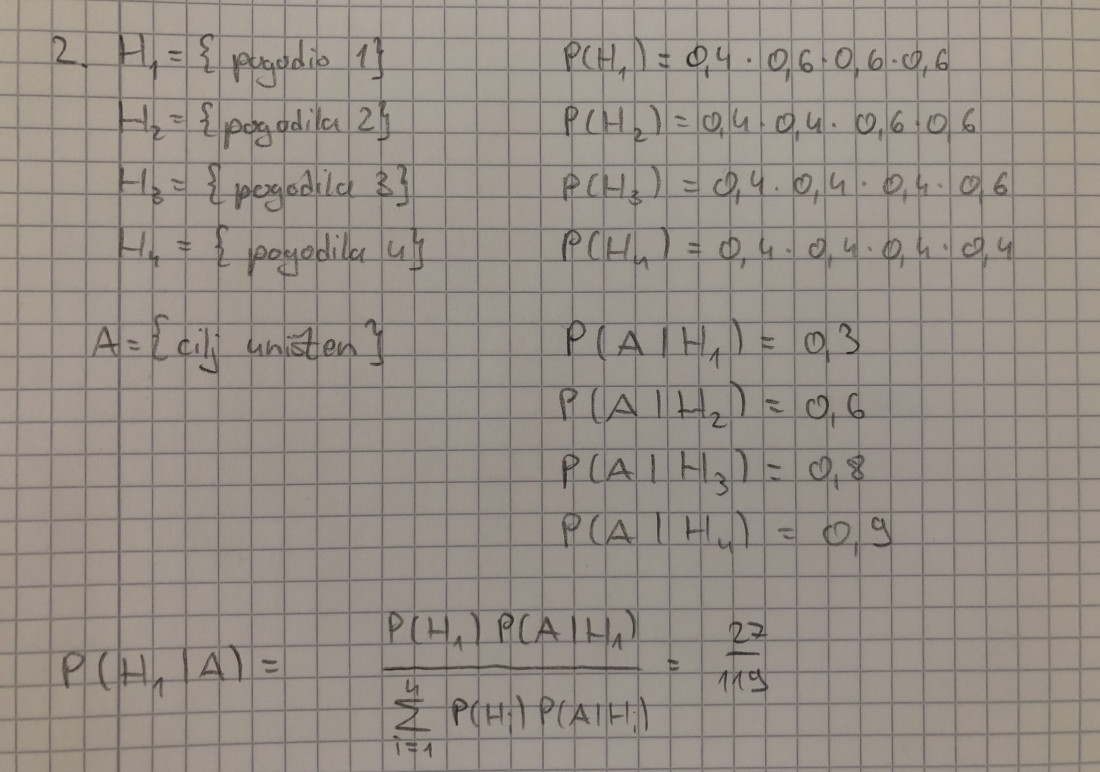 2. H₁ = { pogodio 1} P(H₁) = 0,4 · 0,6 · 0,6 · 0,6
H₂ = {pogodila 2} P(H₂) = 0,4 · 0,4 · 0,6 · 0,6
H₃ = { pogodila 3} P(H₃) = 0,4 · 0,4 · 0,4 · 0,6
H₄ = { pogodila 4} P(H₄) = 0,4 · 0,4 · 0,4 · 0,4
A = {cilj uništen} P(A|H₁) = 0,3
P(A|H₂) = 0,6
P(A|H₃) = 0,8
P(A|H₄) = 0,9
P(H₁|A) = P(H₁) P(A|H₁) / ∑ᵢ₌₁⁴ P(Hᵢ) P(A|Hᵢ) = 27/119